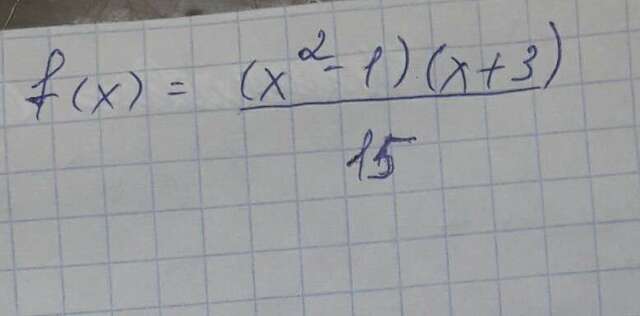 f(x) = (x² - 1)(x + 3)
15